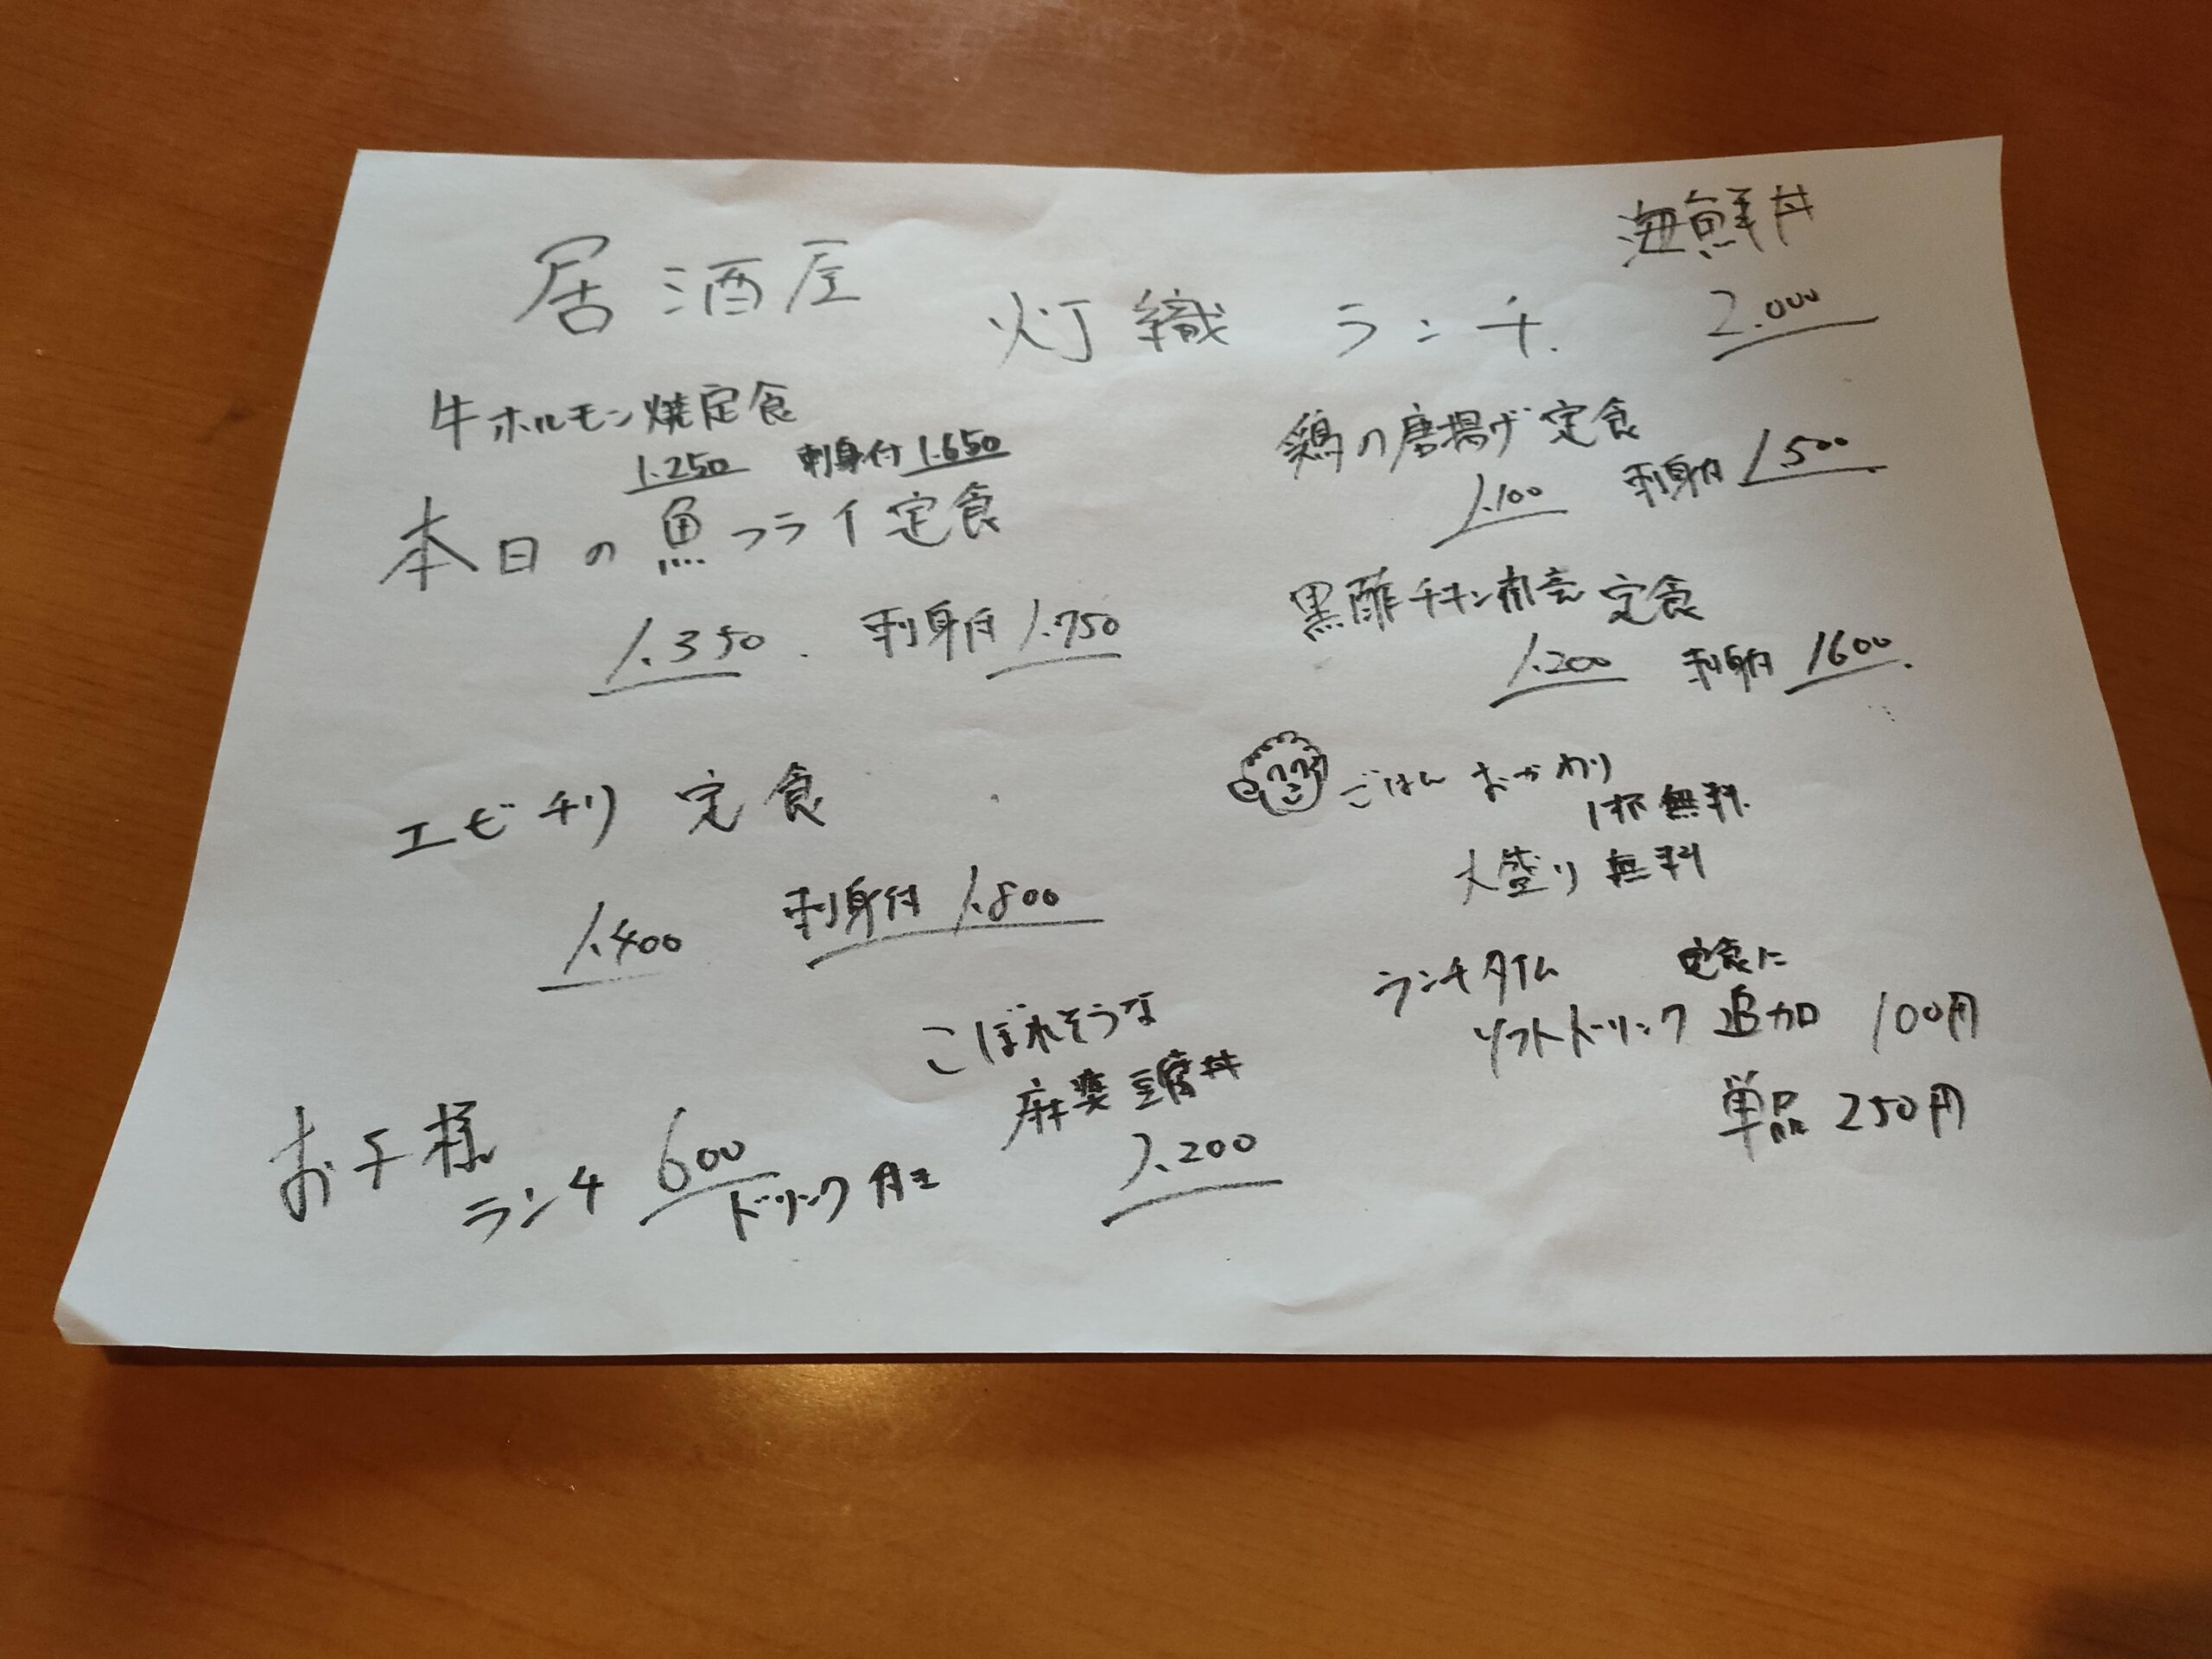 海鮮丼
2.000
居酒屋 灯織 ランチ.
牛ホルモン焼定食
1.250 刺身付 1.650
本日の魚フライ定食
1.350. 刺身付 1.750
エビチリ 定食
1.400 刺身付 1.800
こぼれそうな
麻婆豆腐丼
1.200
お子様
ランチ 600
ドリンク付
鶏の唐揚げ定食
1.100 刺身付 1.500
黒酢チキン南蛮 定食
1.200 刺身付 1600.
ごはん おかわり
1杯無料.
大盛り無料
ランチタイム 定食に
ソフトドリンク 追加 100円
単品 250円